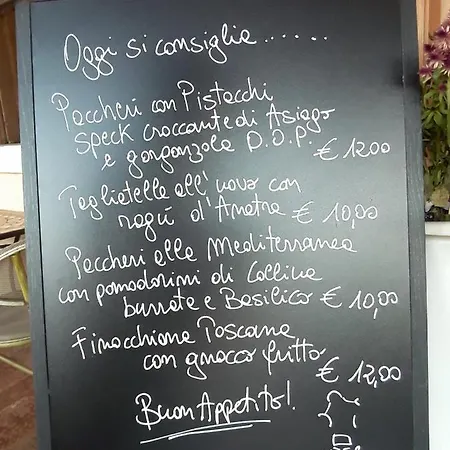 Oggi si consiglia......
Paccheri con Pistacchi
speck croccante di Asiago
e gorgonzola D.O.P. € 12,00
Tagliatelle all'uovo con
ragù d'Anatra € 10,00
Paccheri alla Mediterranea
con pomodorini di Collina
burrata e Basilico € 10,00
Finocchiona Toscana
con gnocco fritto
€ 12,00
Buon Appetito!